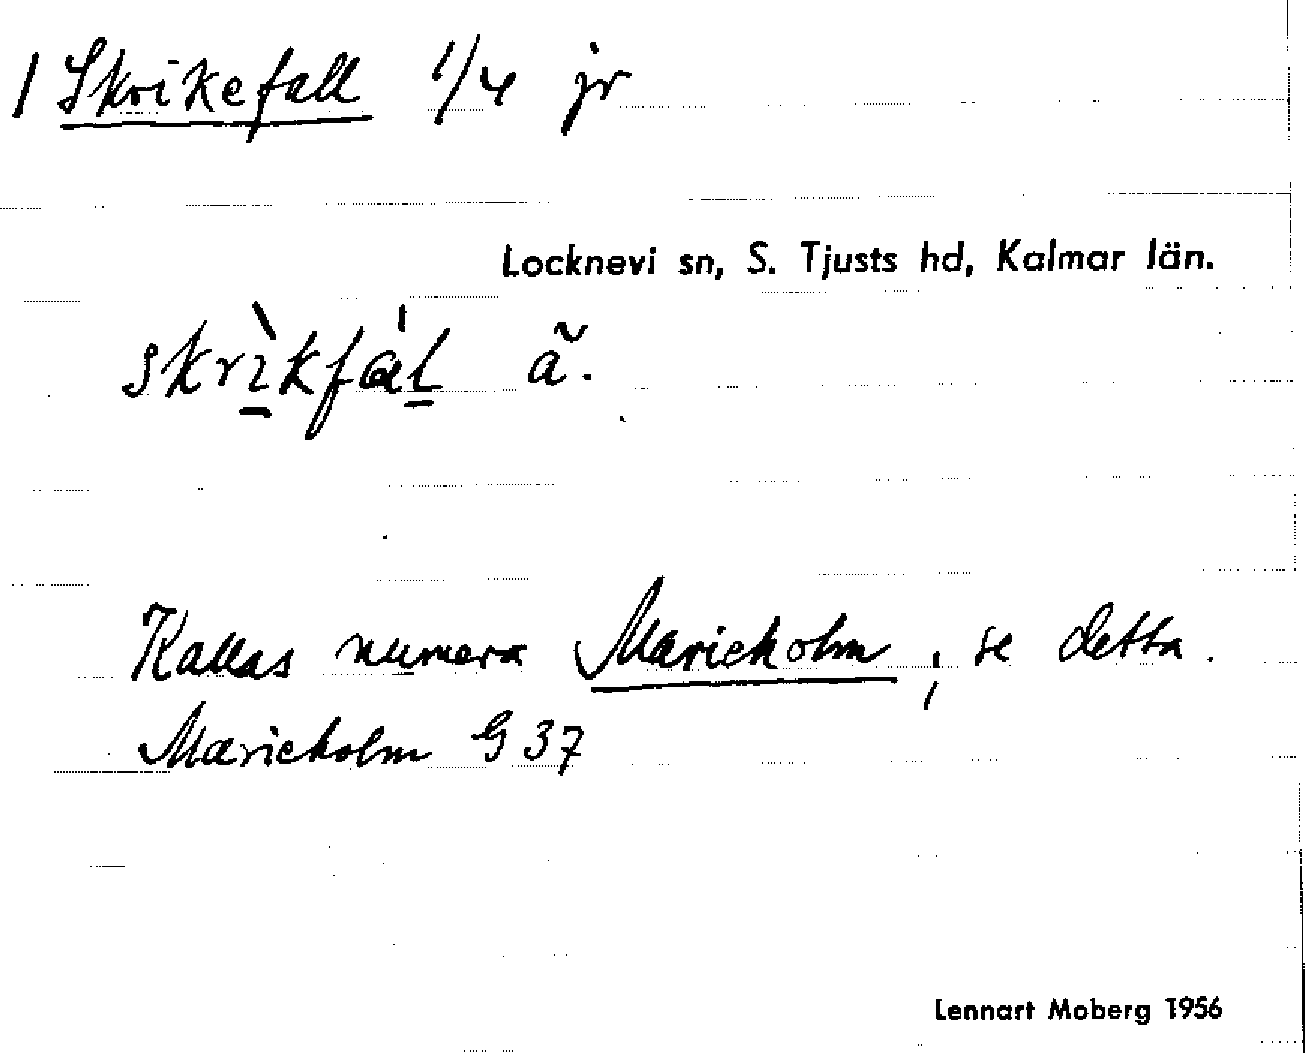 / Skrikefall 1/4 jr
Locknevi sn, S. Tjusts hd, Kalmar län.
skrìkfa̍l ã.
Kallas numera Marieholm, se detta.
Marieholm G 37
Lennart Moberg 1956